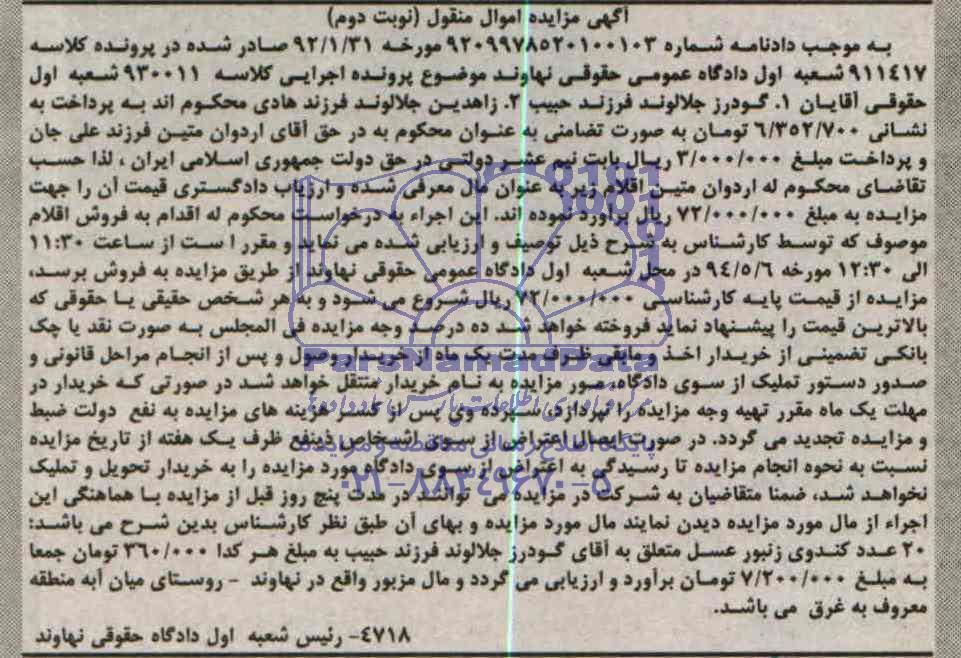 آگهی مزایده اموال منقول (نوبت دوم)
به موجب دادنامه شماره ۹۲۰۹۹۷۸۵۲۰۱۰۰۱۰۳ مورخه ۹۲/۱/۳۱ صادر شده در پرونده کلاسه
۹۱۱٤۱۷ شعبه اول دادگاه عمومی حقوقی نهاوند موضوع پرونده اجرایی کلاسه ۹۳۰۰۱۱ شعبه اول
حقوقی آقایان ۱. گودرز جلالوند فرزند حبیب ۲. زاهدین جلالوند فرزند هادی محکوم اند به پرداخت به
نشانی ٦/۳۵۲/۷۰۰ تومان به صورت تضامنی به عنوان محکوم به در حق آقای اردوان متین فرزند علی جان
و پرداخت مبلغ ۳/۰۰۰/۰۰۰ ریال بابت نیم عشر دولتی در حق دولت جمهوری اسلامی ایران ، لذا حسب
تقاضای محکوم له اردوان متین اقلام زیر به عنوان مال معرفی شده و ارزیاب دادگستری قیمت آن را جهت
مزایده به مبلغ ۷۲/۰۰۰/۰۰۰ ریال برآورد نموده اند. این اجراء به درخواست محکوم له اقدام به فروش اقلام
موصوف که توسط کارشناس به شرح ذیل توصیف و ارزیابی شده می نماید و مقرر ا ست از ساعت ۱۱:۳۰
الی ۱۲:۳۰ مورخه ۹٤/۵/٦ در محل شعبه اول دادگاه عمومی حقوقی نهاوند از طریق مزایده به فروش برسد،
مزایده از قیمت پایه کارشناسی ۷۲/۰۰۰/۰۰۰ ریال شروع می شود و به هر شخص حقیقی یا حقوقی که
بالاترین قیمت را پیشنهاد نماید فروخته خواهد شد ده درصد وجه مزایده فی المجلس به صورت نقد یا چک
بانکی تضمینی از خریدار اخذ و مابقی ظرف مدت یک ماه از خریدار وصول و پس از انجام مراحل قانونی و
صدور دستور تملیک از سوی دادگاه، مور مزایده به نام خریدار منتقل خواهد شد در صورتی که خریدار در
مهلت یک ماه مقرر تهیه وجه مزایده را نپردازد، سپرده وی پس از کسر هزینه های مزایده به نفع دولت ضبط
و مزایده تجدید می گردد. در صورت ایصال اعتراض از سوی اشخاص ذینفع ظرف یک هفته از تاریخ مزایده
نسبت به نحوه انجام مزایده تا رسیدگی به اعتراض از سوی دادگاه مورد مزایده را به خریدار تحویل و تملیک
نخواهد شد، ضمنا متقاضیان به شرکت در مزایده می توانند در مدت پنج روز قبل از مزایده با هماهنگی این
اجراء از مال مورد مزایده دیدن نمایند مال مورد مزایده و بهای آن طبق نظر کارشناس بدین شرح می باشد:
۲۰ عدد کندوی زنبور عسل متعلق به آقای گودرز جلالوند فرزند حبیب به مبلغ هر کدا ۳٦۰/۰۰۰ تومان جمعا
به مبلغ ۷/۲۰۰/۰۰۰ تومان برآورد و ارزیابی می گردد و مال مزبور واقع در نهاوند - روستای میان آبه منطقه
معروف به غرق می باشد.
٤۷۱۸- رئیس شعبه اول دادگاه حقوقی نهاوند
ParsNamadData
پایگاه اطلاع رسانی مناقصه و مزایده
۰۲۱-۸۸۳٤۹٦۷۰-۵